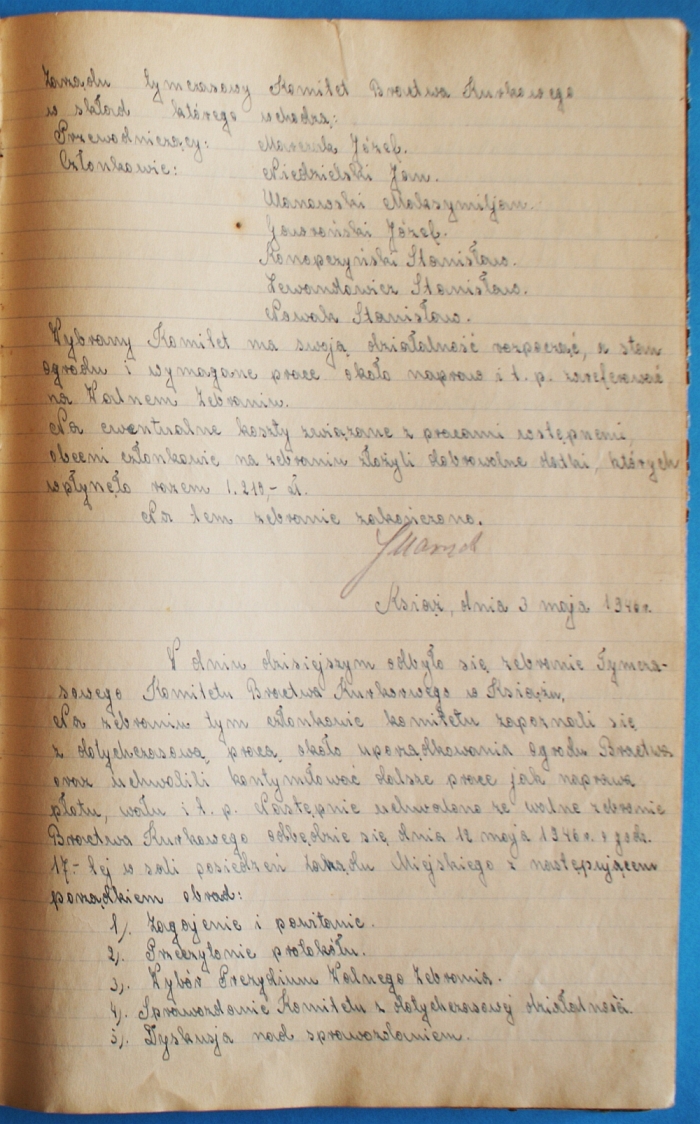 Zarządu tymczasowy Komitet Bractwa Kurkowego
w skład którego wchodzą:
Przewodniczący: Marcuk Józef.
Członkowie: Niedzielski Jan.
Ulanowski Maksymiljan.
Gaworoński Józef.
Konopczyński Stanisław.
Lewandowicz Stanisław.
Nowak Stanisław.
Wybrany Komitet ma swoją działalność rozpocząć, a stan
ogrodu i wymagane prace około napraw i t. p. zareferować
na Walnem Zebraniu.
Na ewentualne koszty związane z pracami wstępnemi,
obecni członkowie na zebraniu złożyli dobrowolne datki, których
wpłynęło razem 1.210,- zł.
Na tem zebranie zakończono.
Książ, dnia 3 maja 1946 r.
W dniu dzisiejszym odbyło się zebranie Tymcza-
sowego Komitetu Bractwa Kurkowego w Książu.
Na zebraniu tym członkowie komitetu zapoznali się
z dotychczasową pracą około uporządkowania ogrodu Bractwa
oraz uchwalili kontynuować dalsze prace jak naprawa
płotu, wału i t. p. Następnie uchwalono że walne zebranie
Bractwa Kurkowego odbędzie się dnia 12 maja 1946 r. o godz.
17-tej w sali posiedzeń Zarządu Miejskiego z następującem
porządkiem obrad:
1). Zagojenie i powitanie.
2). Przeczytanie protokółu.
3). Wybór Prezydium Walnego Zebrania.
4). Sprawozdanie Komitetu z dotychczasowej działalności.
5). Dyskusja nad sprawozdaniem.